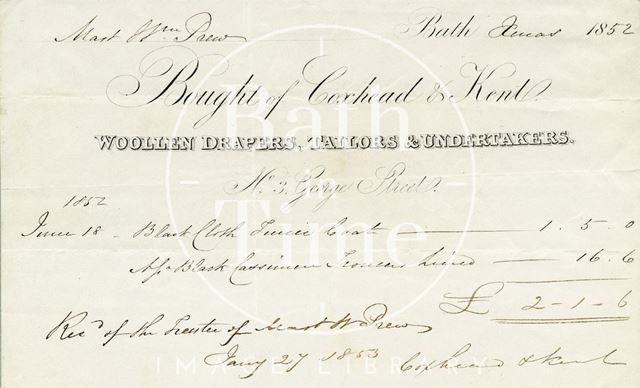 Mast Wm Drew Bath Xmas 1852
Bought of Coxhead & Kent.
WOOLLEN DRAPERS, TAILORS & UNDERTAKERS.
No. 3, George Street.
1852
June 18 Black Cloth Tunic Coat 1.5.0
Black Cassimere Trousers lined 16.6
£ 2-1-6
Recd of the Trustee of Mast W Drew
Jany 27 1853 Coxhead & Kent
Bath in Time
IMAGE LIBRARY